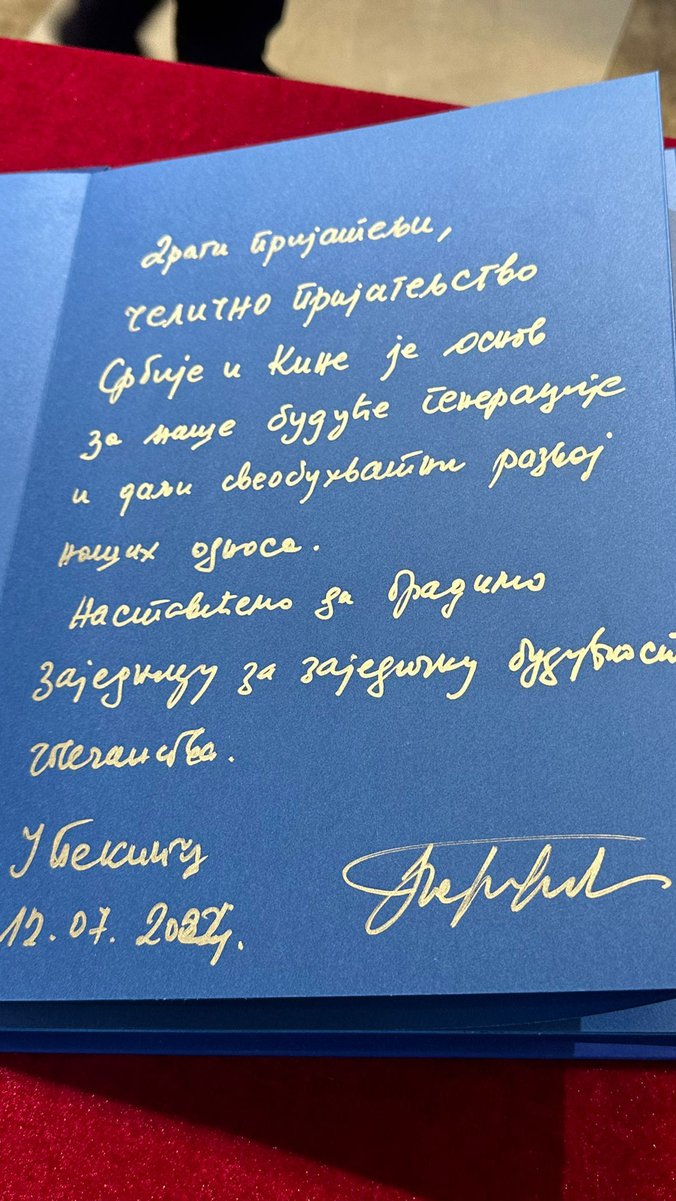 Драги пријатељи,
челично пријатељство
Србије и Кине је основ
за наше будуће генерације
и даљи свеобухватни развој
наших односа.
Наставићемо да градимо
заједницу за заједничку будућност
човечанства.
У Пекингу
12.07.